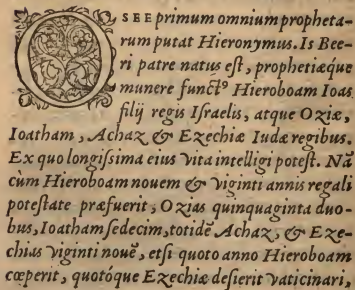 OSEE primum omnium propheta-
rum putat Hieronymus. Is Bee-
ri patre natus eſt, prophetiæque
munere funct⁹ Hieroboam Ioas
filij regis Iſraelis, atque Oziæ,
Ioatham, Achaz & Ezechiæ Iudæ regibus.
Ex quo longiſsima eius vita intelligi poteſt. Nā
cùm Hieroboam nouem & viginti annis regali
poteſtate præfuerit, Ozias quinquaginta duo-
bus, Ioatham ſedecim, totidē Achaz, & Eze-
chias viginti nouē, etſi quoto anno Hieroboam
cœperit, quotóque Ezechiæ deſierit vaticinari,